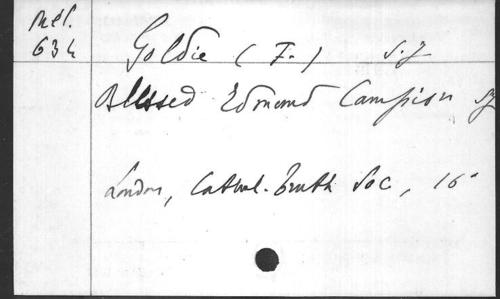 Mél.
634
Goldie (F.) S.J
Blessed Edmond Campion SJ
London, Cathol. Truth Soc, 16°